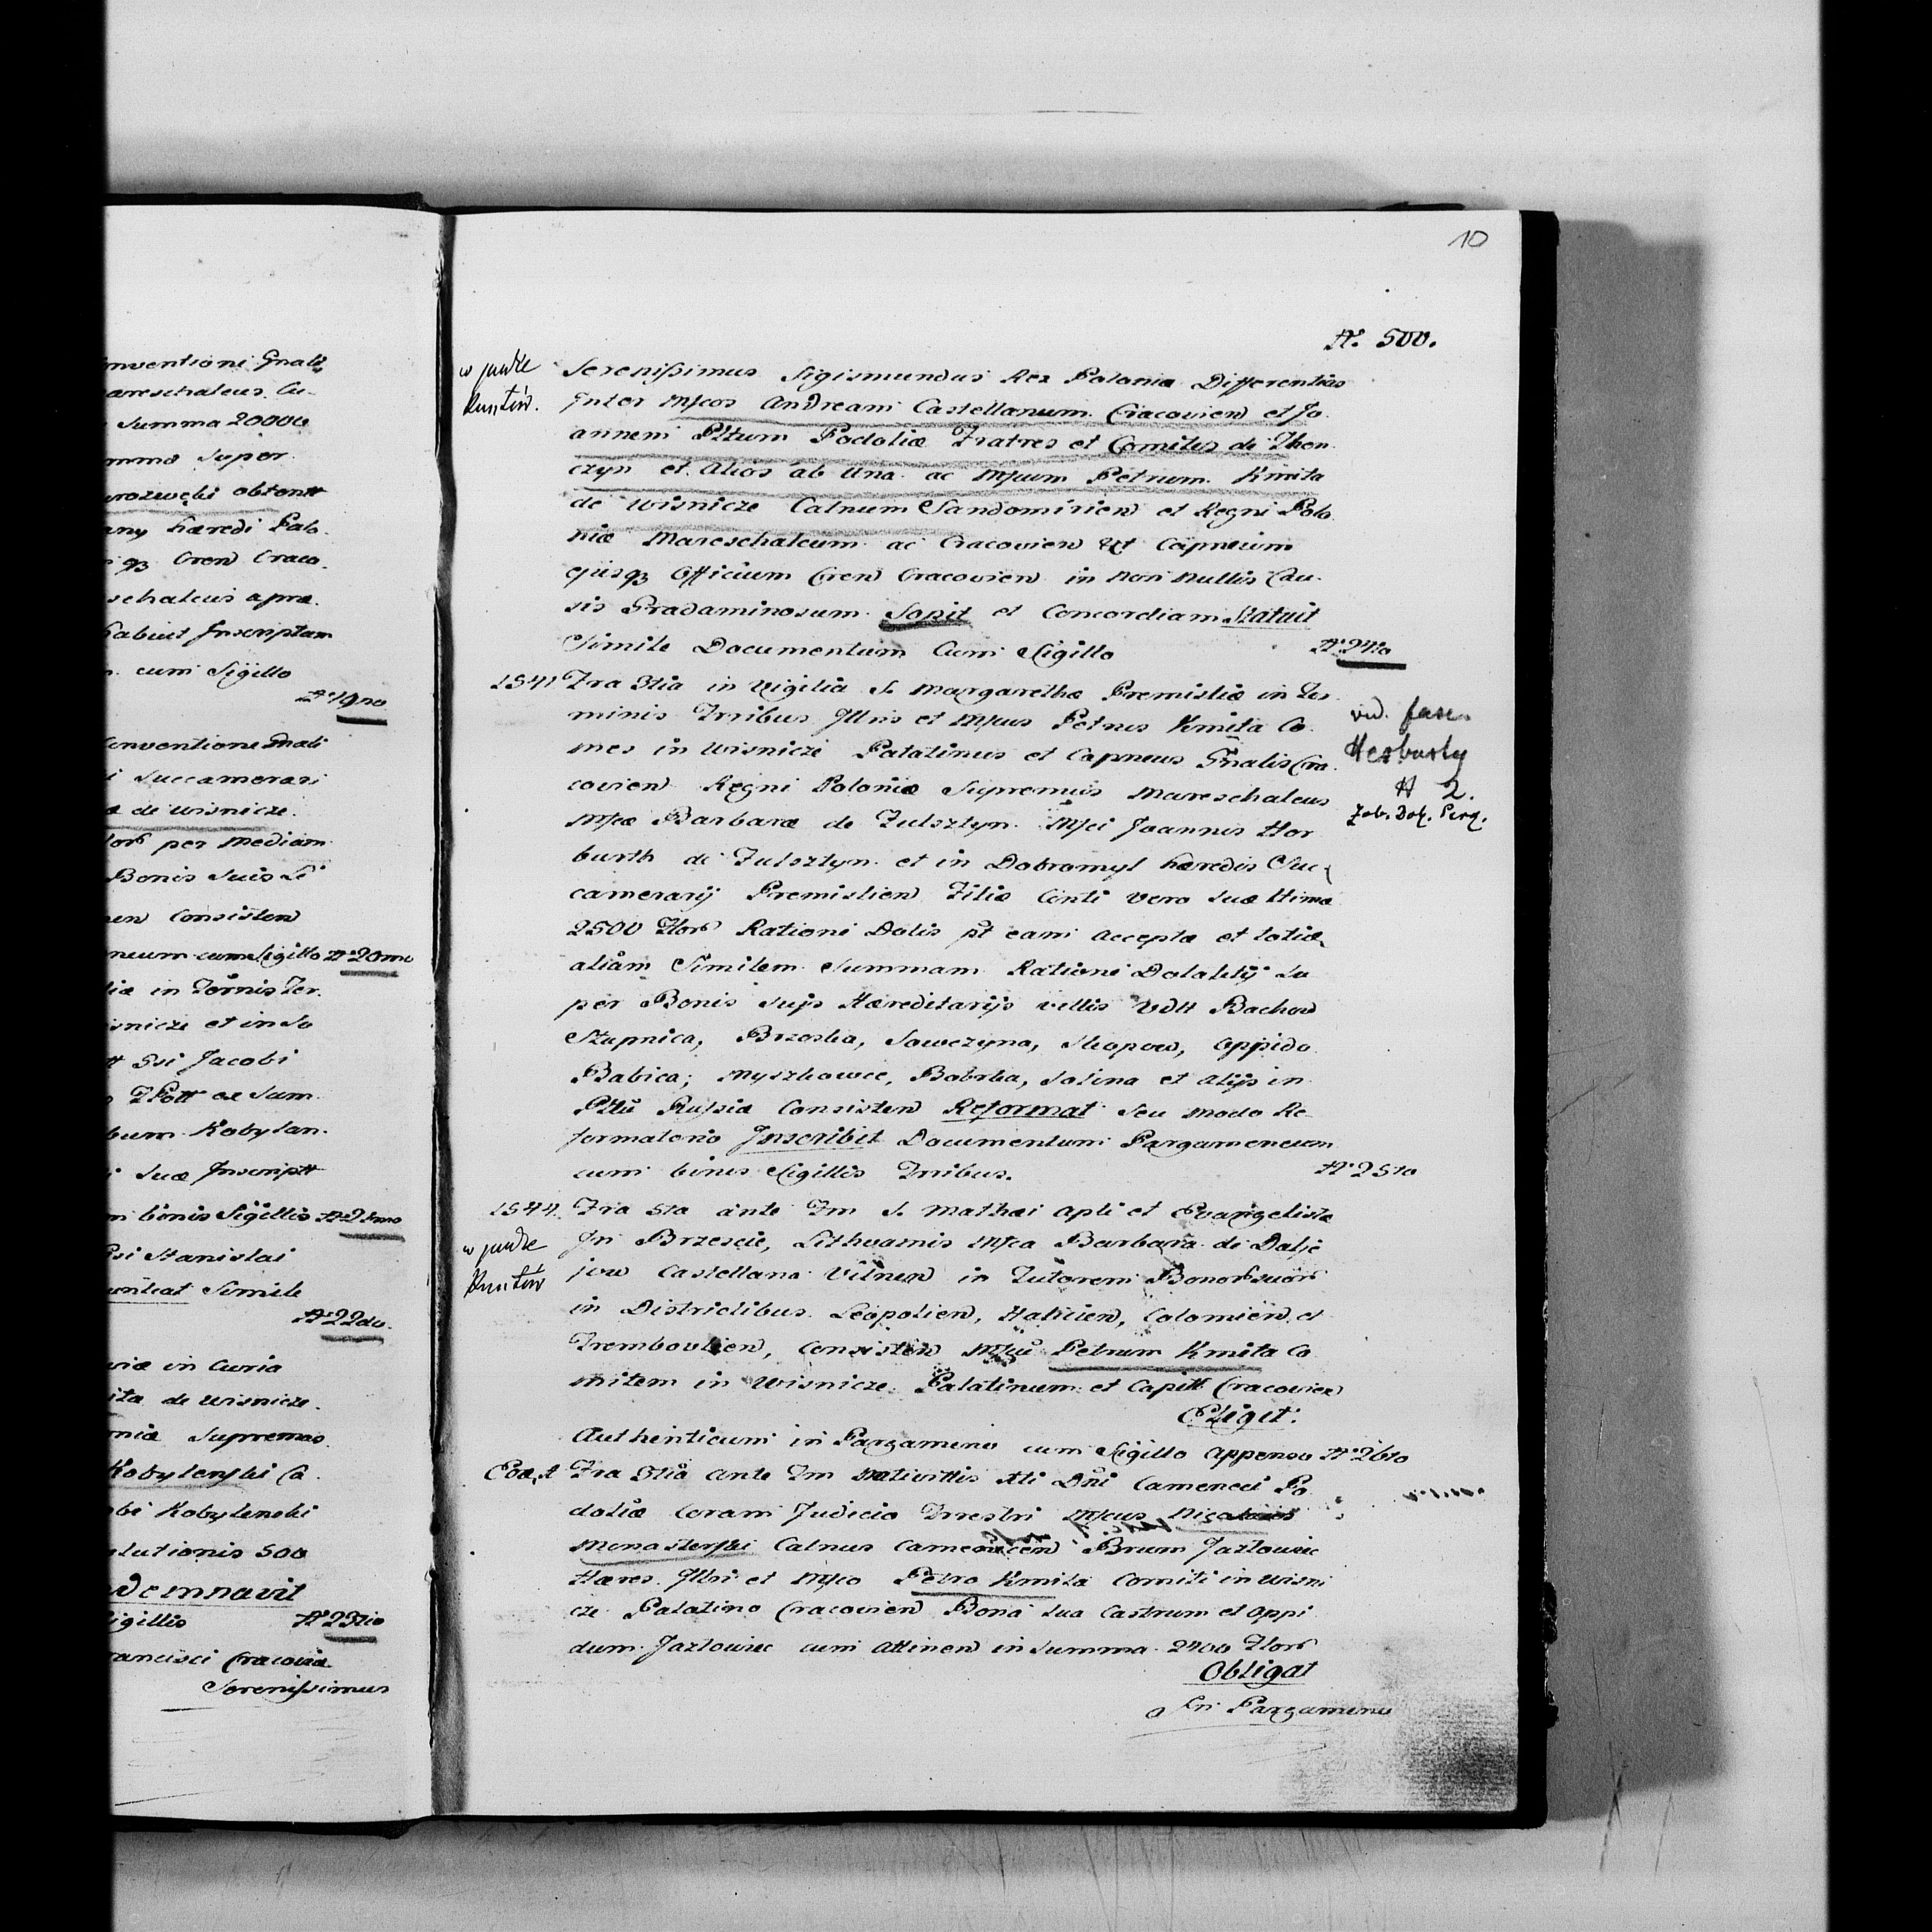 nventioni Gnali
areschalcus Cu-
Summa 20000
mmo Super
obtentt
any hæredi Pala-
qz Cren Craco-
schalcus apræ-
habuit Inscriptam
cum Sigillo
Nº 19no
Conventione Gnali
i Succamerari
æ de Wisnicze.
lors per mediam
Bonis Suis
en Consisten
neum cum Sigillo Nº 20mo
iæ in Tornis Ter-
isnicze et in So
tt Sti Jacobi
Sum
bum Kobylan-
i Suæ Inscriptt
m binis Sigillis Nº 21mo
Psi Stanislai
Simile
Nº 22do.
viæ in Curia
ita de Wisnicze.
oniæ Supremus
Kobylenski Ca-
obi Kobylenski
olutionis 500
demnavit
Sigillis Nº 23tio
rancisci Cracoviæ
Serenissimus
10
N. 500.
w pudle
Serenissimus Sigismundus Rex Poloniæ Differentias
Inter Mfcos Andream Castellanum Cracovien et Jo-
annem Pltum Podoliæ Fratres et Comites de Then-
czyn et Alios ab Una ac Mfcum Petrum Kmita
de Wisnicze Catnum Sandomirien et Regni Polo-
niæ Mareschalcum ac Cracovien Capneum
ejusqz Officium Cren Cracovien in Non Nullis Cau-
sis Gradaminosum Sopit et Concordiam Statuit
Simile Documentum Cum Sigillo Nº 24to
1541 Fra 3tia in Vigilia S. Margarethæ Premisliæ in Ter-
minis Trribus Illris et Mfcus Petrus Kmita Co-
mes in Wisnicze Palatinus et Capneus Gnalis Cra-
covien Regni Poloniæ Supremus Mareschalcus
Mfcæ Barbaræ de Fulsztyn Mfci Joannis Her-
burth de Fulsztyn et in Dobromyl hæredis Suc-
camerarij Premislien Filiæ Conti vero Suæ ttimæ
2500 Flors Rationi Dotis pt eam Acceptæ et totid
aliam Similem Summam Rationi Dotalitij Su-
per Bonis Suijs Hæreditarijs villis Vdtt Bachow
Stupnica, Brzoska, Sawczyna, Skopow, Oppido
Babica; Myszkowce, Bobrka, Solina et Alijs in
Pttu Russiæ Consisten Reformat Seu Modo Re-
formatorio Inscribit Documentum Pargameneum
cum binis Sigillis Trribus. Nº 25to
vid. fasc.
Herburty
N 2.
Zob. Dok. Perg.
1544. Fra 5ta ante Fm S. Mathæi Apli et Evangelistæ
w pudle
In Brzescie, Lithvanis Mfca Barbara de Datje
jow Castellana Vilnen in Tutorem Bonors suors
in Districtibus Leopolien, Halicien, Colomien, et
Trembowlien, Consisten Mfcu Petrum Kmita Co-
mitem in Wisnicze Palatinum et Capitt Cracovien
Eligit.
Authenticum in Pargameno cum Sigillo Appenso Nº 26to
Eod, t Fra 3tia ante Fm Nativittis Xti Dni Cameneci Po-
doliæ Coram Judicio Trrestri Mfcus
Monasterski Catnus Camenecen Brum Jazlowiec
Hæres Illri et Mfco Petro Kmita Comiti in Wisni-
cze Palatino Cracovien Bona Sua Castrum et Oppi-
dum Jazlowiec cum Attinen in Summa 2400 Flors
Obligat
In Pargameno